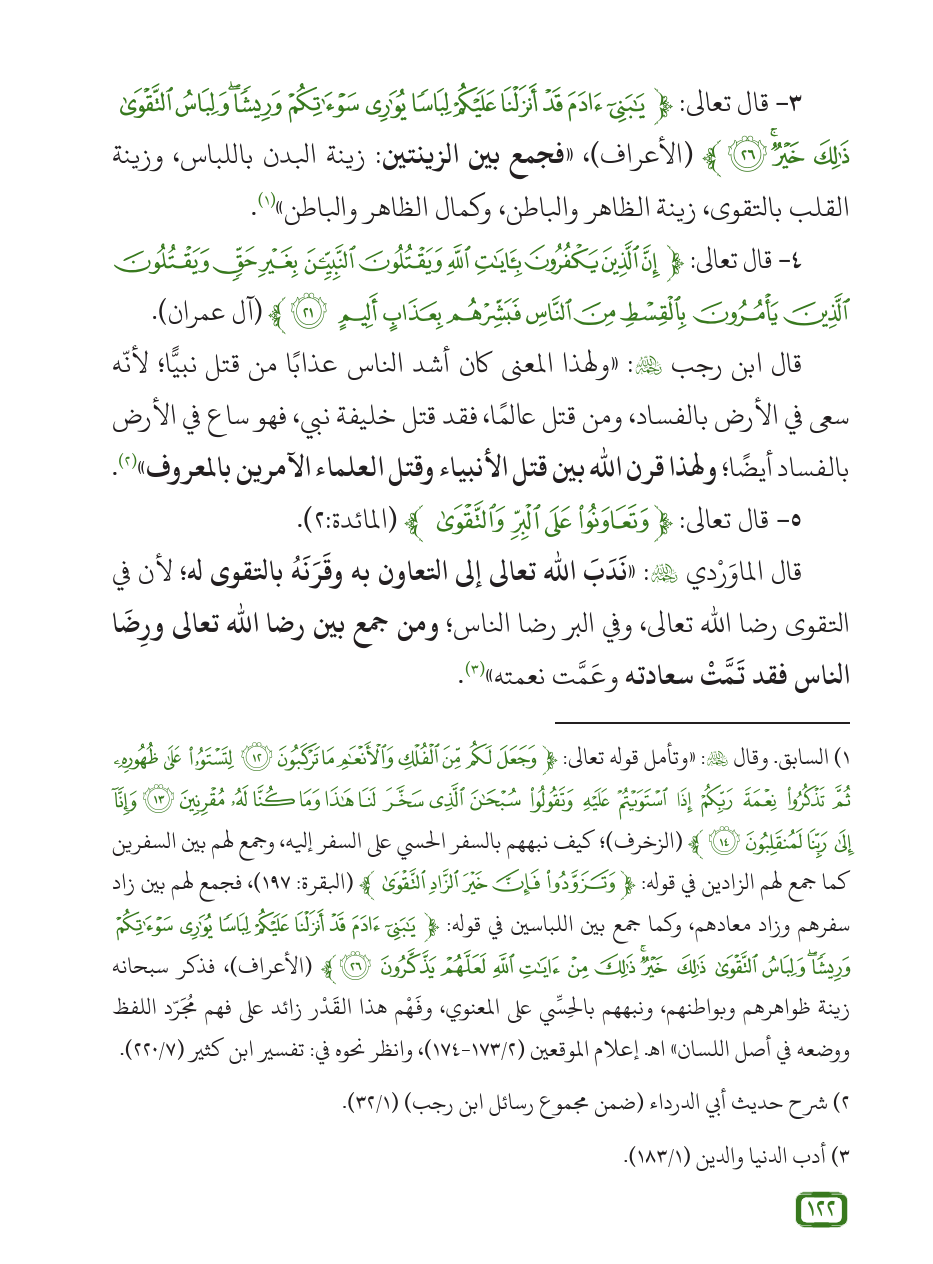 ٣- قال تعالى: ﴿ يَٰبَنِيٓ ءَادَمَ قَدۡ أَنزَلۡنَا عَلَيۡكُمۡ لِبَاسٗا يُوَٰرِي سَوۡءَٰتِكُمۡ وَرِيشٗاۖ وَلِبَاسُ ٱلتَّقۡوَىٰ
ذَٰلِكَ خَيۡرٞۚ ٢٦ ﴾ (الأعراف)، «فجمع بين الزينتين: زينة البدن باللباس، وزينة
القلب بالتقوى، زينة الظاهر والباطن، وكمال الظاهر والباطن»(١).
٤- قال تعالى: ﴿ إِنَّ ٱلَّذِينَ يَكۡفُرُونَ بِـَٔايَٰتِ ٱللَّهِ وَيَقۡتُلُونَ ٱلنَّبِيِّـۧنَ بِغَيۡرِ حَقّٖ وَيَقۡتُلُونَ
ٱلَّذِينَ يَأۡمُرُونَ بِٱلۡقِسۡطِ مِنَ ٱلنَّاسِ فَبَشِّرۡهُم بِعَذَابٍ أَلِيمٍ ٢١ ﴾ (آل عمران).
قال ابن رجب ﵀: «ولهذا المعنى كان أشد الناس عذابًا من قتل نبيًّا؛ لأنّه
سعى في الأرض بالفساد، ومن قتل عالمًا، فقد قتل خليفة نبي، فهو ساع في الأرض
بالفساد أيضًا؛ ولهذا قرن الله بين قتل الأنبياء وقتل العلماء الآمرين بالمعروف»(٢).
٥- قال تعالى: ﴿ وَتَعَاوَنُواْ عَلَى ٱلۡبِرِّ وَٱلتَّقۡوَىٰ ﴾ (المائدة:٢).
قال الماوَرْدي ﵀: «نَدَبَ الله تعالى إلى التعاون به وقَرَنَهُ بالتقوى له؛ لأن في
التقوى رضا الله تعالى، وفي البر رضا الناس؛ ومن جمع بين رضا الله تعالى ورِضَا
الناس فقد تَمَّتْ سعادته وعَمَّت نعمته»(٣).
١) السابق. وقال ﵀: «وتأمل قوله تعالى: ﴿ وَجَعَلَ لَكُم مِّنَ ٱلۡفُلۡكِ وَٱلۡأَنۡعَٰمِ مَا تَرۡكَبُونَ ١٢ لِتَسۡتَوُۥاْ عَلَىٰ ظُهُورِهِۦ
ثُمَّ تَذۡكُرُواْ نِعۡمَةَ رَبِّكُمۡ إِذَا ٱسۡتَوَيۡتُمۡ عَلَيۡهِ وَتَقُولُواْ سُبۡحَٰنَ ٱلَّذِي سَخَّرَ لَنَا هَٰذَا وَمَا كُنَّا لَهُۥ مُقۡرِنِينَ ١٣ وَإِنَّآ
إِلَىٰ رَبِّنَا لَمُنقَلِبُونَ ١٤ ﴾ (الزخرف)؛ كيف نبههم بالسفر الحسي على السفر إليه، وجمع لهم بين السفرين
كما جمع لهم الزادين في قوله: ﴿ وَتَزَوَّدُواْ فَإِنَّ خَيۡرَ ٱلزَّادِ ٱلتَّقۡوَىٰ ﴾ (البقرة: ١٩٧)، فجمع لهم بين زاد
سفرهم وزاد معادهم، وكما جمع بين اللباسين في قوله: ﴿ يَٰبَنِيٓ ءَادَمَ قَدۡ أَنزَلۡنَا عَلَيۡكُمۡ لِبَاسٗا يُوَٰرِي سَوۡءَٰتِكُمۡ
وَرِيشٗاۖ وَلِبَاسُ ٱلتَّقۡوَىٰ ذَٰلِكَ خَيۡرٞۚ ذَٰلِكَ مِنۡ ءَايَٰتِ ٱللَّهِ لَعَلَّهُمۡ يَذَّكَّرُونَ ٢٦ ﴾ (الأعراف)، فذكر سبحانه
زينة ظواهرهم وبواطنهم، ونبههم بالحِسِّي على المعنوي، وفَهْم هذا القَدْر زائد على فهم مُجَرّد اللفظ
ووضعه في أصل اللسان» اهـ. إعلام الموقعين (٢/‏١٧٣-١٧٤)، وانظر نحوه في: تفسير ابن كثير (٧/‏٢٢٠).
٢) شرح حديث أبي الدرداء (ضمن مجموع رسائل ابن رجب) (١/‏٣٢).
٣) أدب الدنيا والدين (١/‏١٨٣).
١٢٢